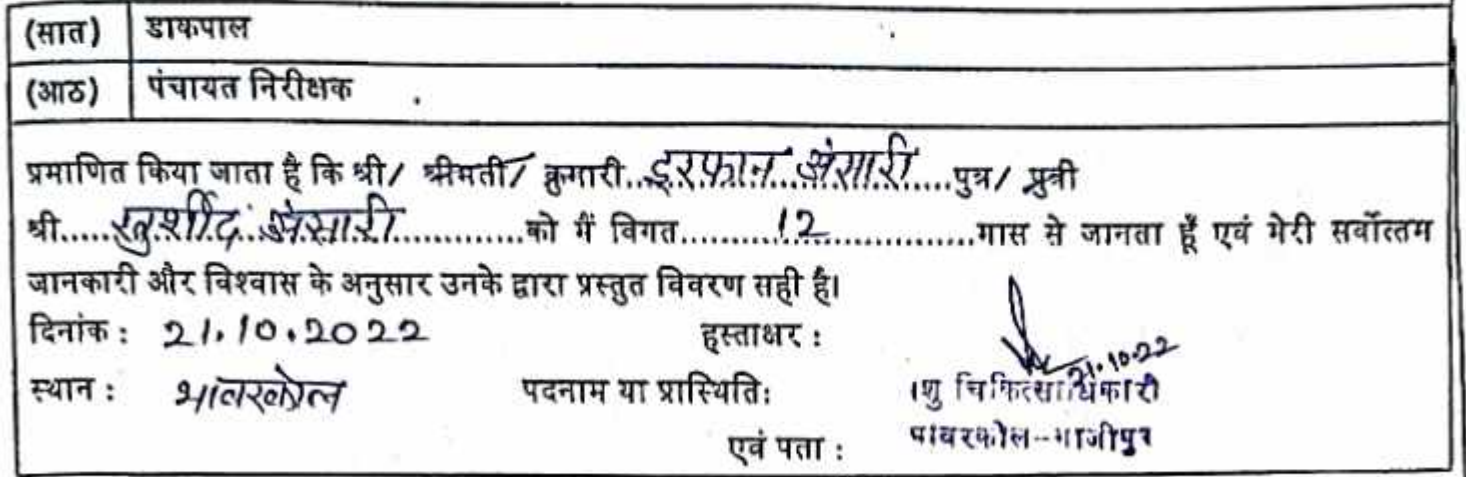 (सात) डाकपाल
(आठ) पंचायत निरीक्षक
प्रमाणित किया जाता है कि श्री/ श्रीमती/ कुमारी..इरफान अंसारी.....पुत्र/ पुत्री
श्री.....खुर्शीद अंसारी.............को मैं विगत...........12...................मास से जानता हूँ एवं मेरी सर्वोत्तम
जानकारी और विश्वास के अनुसार उनके द्वारा प्रस्तुत विवरण सही है।
दिनांक : 21.10.2022 हस्ताक्षर :
21.10.22
स्थान : भावरकोल पदनाम या प्रास्थिति: पशु चिकित्साधिकारी
एवं पता : भावरकोल--गाजीपुर